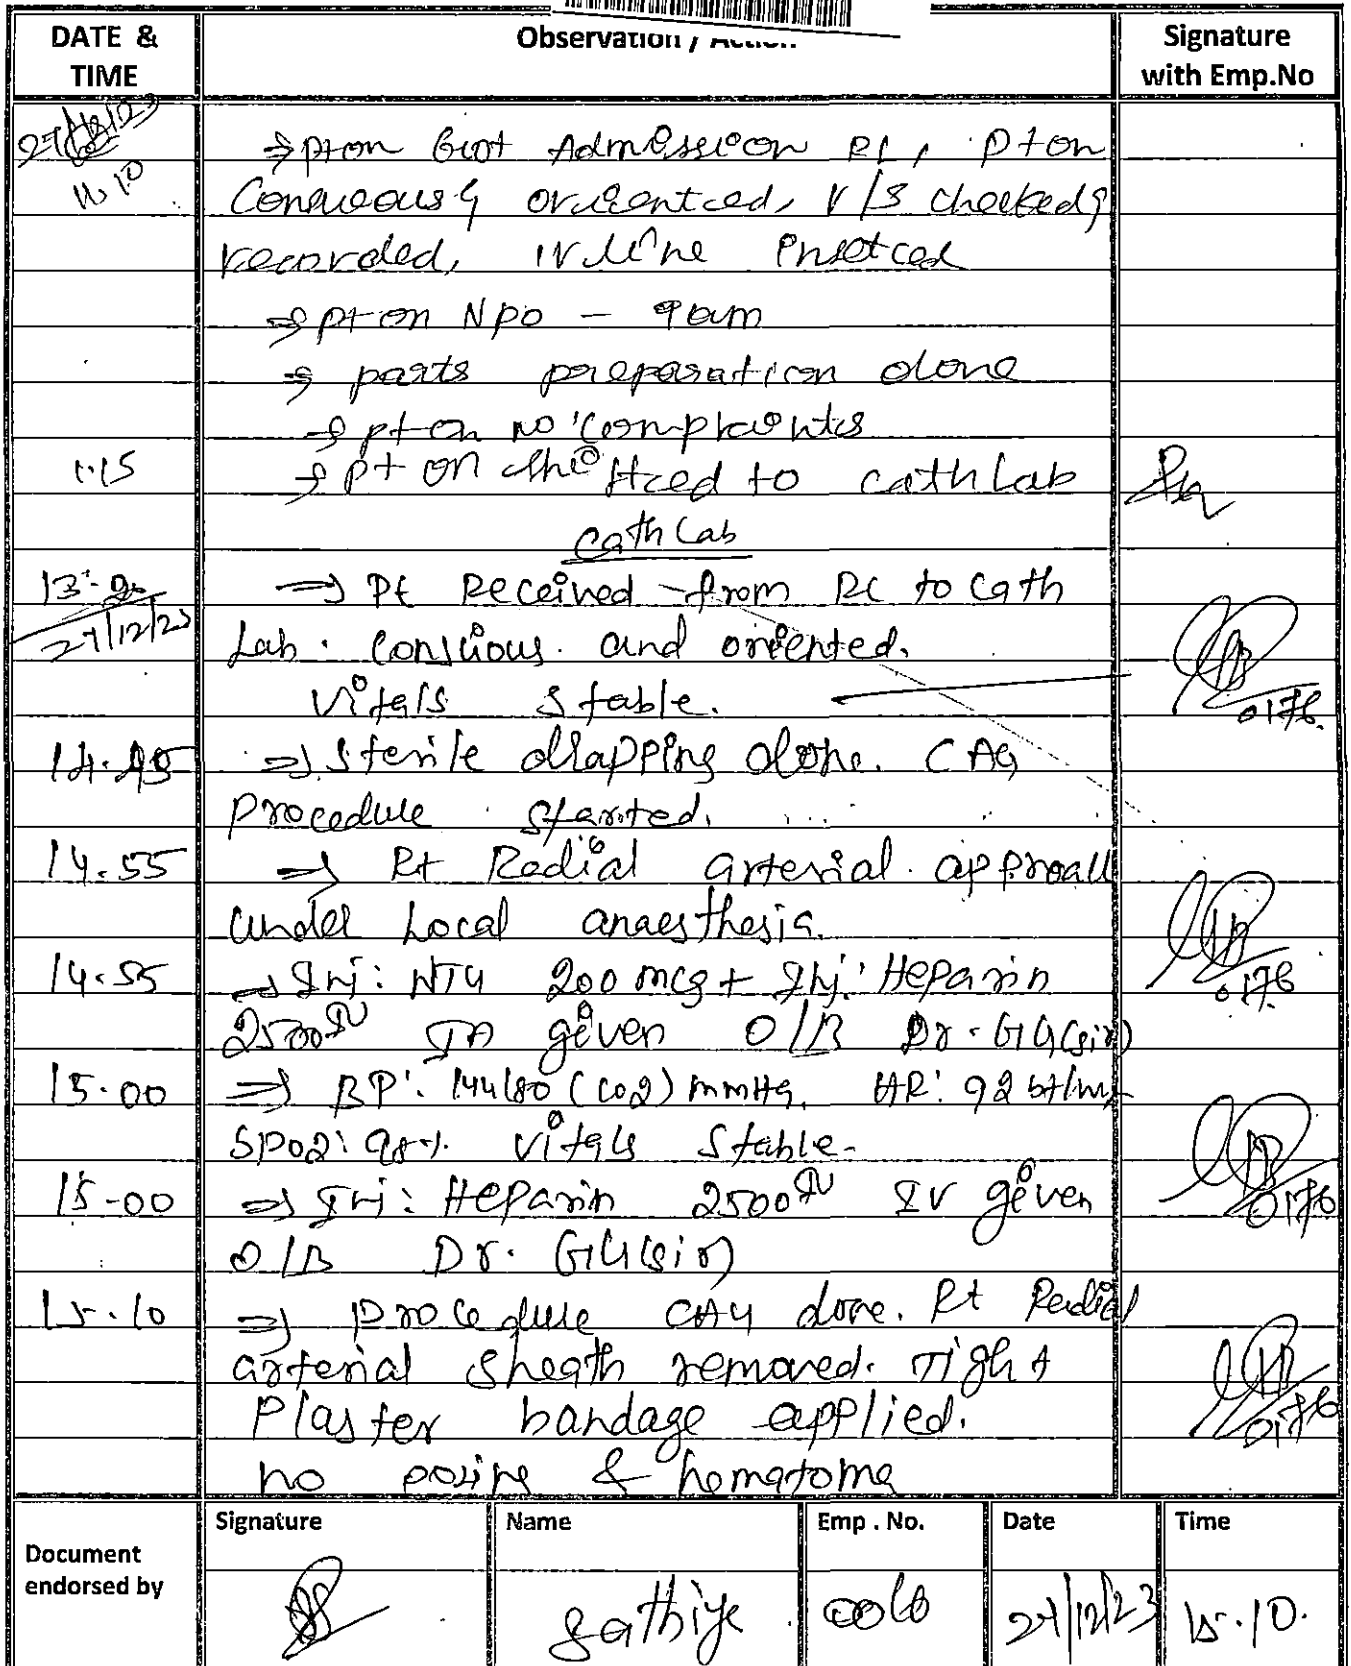 DATE & TIME Observation / Action Signature with Emp.No
27/12/23 ⇒ pt on Admission RL, pt on
11.10 orcentced, V/S checked &
recorded, IV line
→ pt on NPO - 9am
→ parts preparation done
→ pt on no complaints
1.15 → pt on to cath Lab
Cath Lab
13. ⇒ Pt Received from RL to Cath
27/12/23 Lab. Conscious. and oriented.
Vitals Stable. 0176.
14.45 ⇒ Sterile drapping done. CAG
Procedure Started.
14.55 ⇒ Rt Radial arterial approach
under Local anaesthesia.
14.55 ⇒ Inj: NTG 200 mcg + Inj: Heparin 0176
2500 IU IA given O/B Dr. (sir)
15.00 ⇒ BP: 144/80 (102) mmHg. HR: 92 bt/mt
SPO2: 98%. Vitals Stable.
15.00 ⇒ Inj: Heparin 2500 IU IV given 0176
O/B Dr. (sir)
15.10 ⇒ Procedure CAG done. Rt Radial
arterial Sheath removed. Tight
Plaster bandage applied. 0176
no & hematoma
Document endorsed by Signature Name Emp . No. Date Time
Sathiye 27/12/23 15.10.